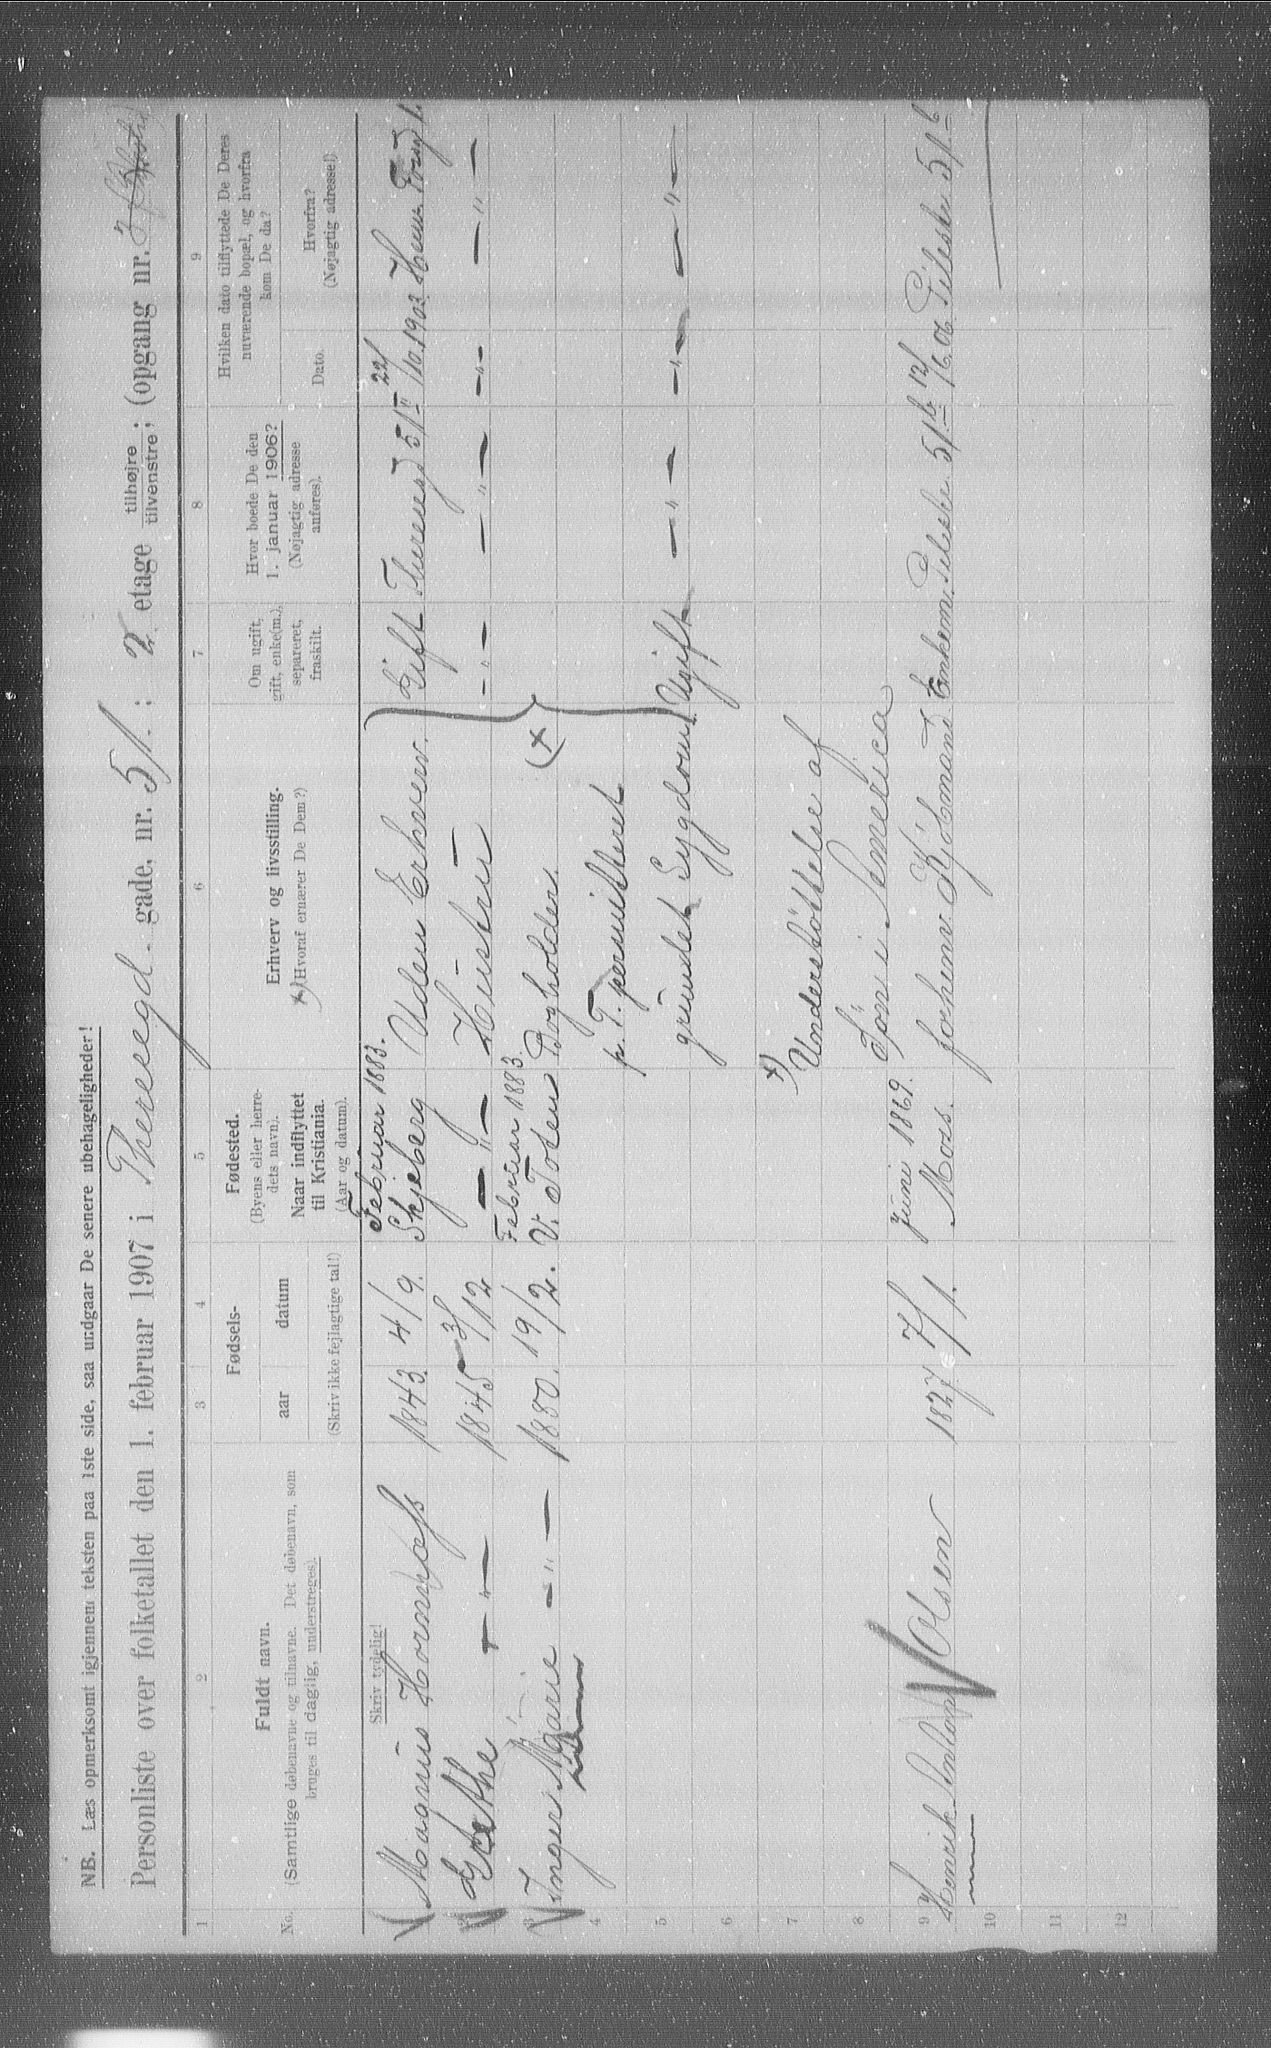 NB. Læs opmerksomt igjennem teksten paa 1ste side, saa undgaar De senere ubehageligheder!
Personliste over folketallet den 1. februar 1907 i Theresegd. gade, nr. 51. : 2 etage tilhøjre tilvenstre; (opgang nr.
1 2 3 4 5 6 7 8 9
No.
Fuldt navn.
(Samtlige døbenavne og tilnavne. Det døbenavn, som
bruges til daglig, understreges).
Skriv tydelig!
Fødsels-
aar datum
(Skriv ikke fejlagtige tal!)
Fødested.
(Byens eller herre-
dets navn).
Naar indflyttet
til Kristiania.
(Aar og datum).
Erhverv og livsstilling.
x) (Hvoraf ernærer De Dem?)
Om ugift,
gift, enke(m.),
separeret,
fraskilt.
Hvor boede De den
1. januar 1906?
(Nøjagtig adresse
anføres).
Hvilken dato tilflyttede De Deres
nuværende bopæl, og hvorfra
kom De da?
Dato.
Hvorfra?
(Nøjagtig adresse!)
Februar 1883.
Magnus Hornnæss 1843 4/9. Skjeberg Uden Erhverv. Gift Theresegd 51 II 22/10.1903
Grethe —„— 1845 3/12 —„— Hustru —„— —„— —„— —„—
Februar 1883
3 Inger Marie —„— 1880. 19/2. V. Toten Bogholder. (x)
4 p. T. permitteret
5 grundet Sygdom Ugift —„— —„— —„—
6
x)
7 Understøttelse af
8 Søn i America
Juni 1869.
9 Henrik Olsen 1827 7/1. Moss. forhenv. Kjøbmand Enkem. Pilestr. 51 b 12/6.06 Pilestr. 51 b
10
11
12